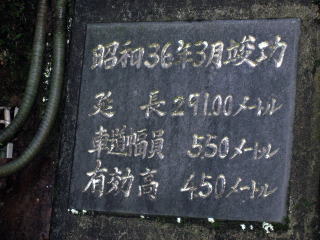 昭和36年3月竣功
延 長 291.00メートル
車道幅員 5.50メートル
有効高 4.50メートル